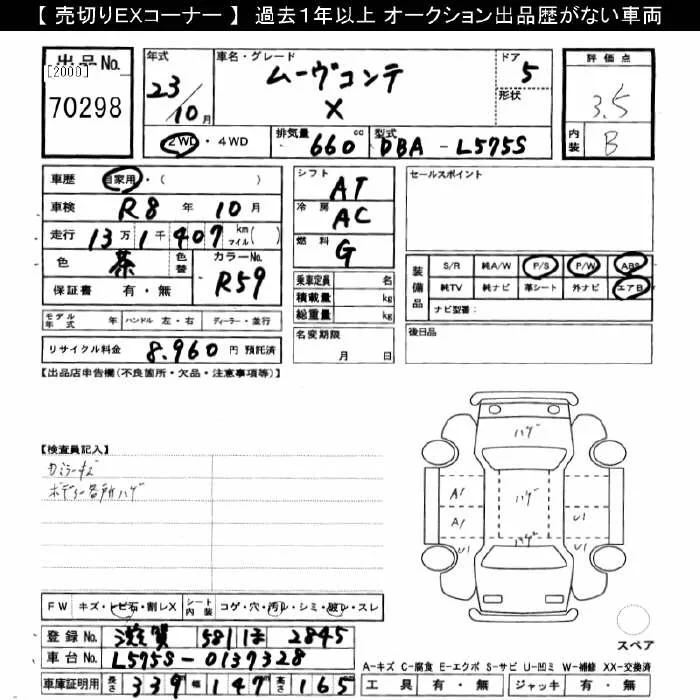 【 売切りEXコーナー 】 過去1年以上 オークション出品歴がない車両
出品No.
[2000]
70298
年式 23/10月
車名・グレード ムーヴコンテ X
ドア 5
形状
評価点 3.5
内装 B
2WD・4WD 排気量 660cc 型式 DBA - L575S
車歴 自家用・( )
車検 R8年 10月
走行 13万1千407 km マイル( )
色 茶 色替 カラーNo. R59
保証書 有・無
シフト AT
冷房 AC
燃料 G
乗車定員 名
積載量 kg
総重量 kg
名変期限 月 日
セールスポイント
装備品 S/R 純A/W P/S P/W ABS
純TV 純ナビ 革シート 外ナビ エアB
ナビ型番:
後日品
モデル年式 年 ハンドル 左・右 ディーラー・並行
リサイクル料金 8,960 円 預託済
【出品店申告欄(不良箇所・欠品・注意事項等)】
【検査員記入】
ボディー各所ハゲ
ハゲ
ハゲ
ハゲ
A1
A1
U1
U1
U1
FW キズ・トビ石・割レX シート内装 コゲ・穴・汚レ・シミ・破レ・スレ
登録No. 滋賀 581 ほ 2845
車台No. L575S-0137328
車庫証明用 長さ 339 幅 147 高さ 165
スペア
A-キズ C-腐食 E-エクボ S-サビ U-凹ミ W-補修 XX-交換済
工具 有・無 ジャッキ 有・無